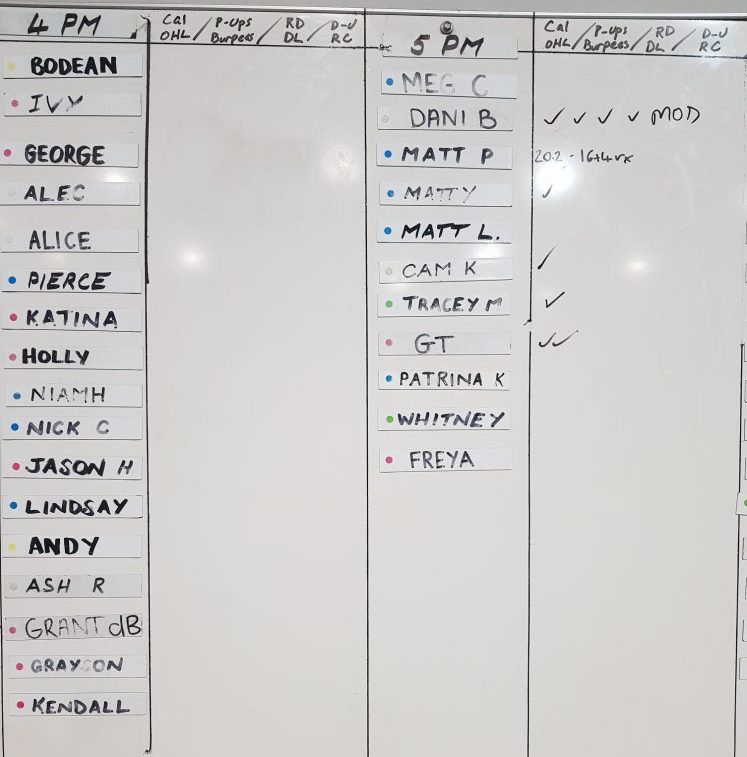 4 PM
Cal / P-Ups / RD / D-U
OHL / Burpees / DL / RC
BODEAN
IVY
GEORGE
ALEC
ALICE
PIERCE
KATINA
HOLLY
NIAMH
NICK C
JASON H
LINDSAY
ANDY
ASH R
GRANT dB
GRAYSON
KENDALL
5 PM
Cal / P-Ups / RD / D-U
OHL / Burpees / DL / RC
MEG C
DANI B ✓ ✓ ✓ ✓ MOD
MATT P 20.2 - 16+4 rx
MATTY ✓
MATT L.
CAM K ✓
TRACEY M ✓
GT ✓✓
PATRINA K
WHITNEY
FREYA